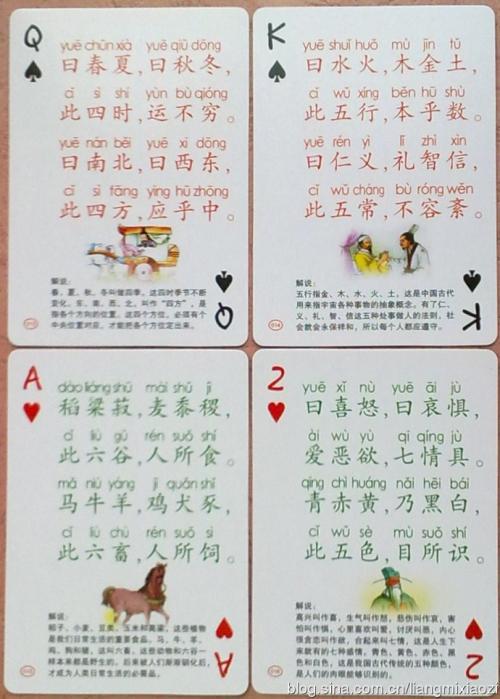 Q
yuē chūn xià yuē qiū dōng
曰春夏，曰秋冬，
cǐ sì shí yùn bù qióng
此四时，运不穷。
yuē nán běi yuē xī dōng
曰南北，曰西东，
cǐ sì fāng yìng hū zhōng
此四方，应乎中。
解说：
春、夏、秋、冬叫做四季。这四时季节不断
变化。东、南、西、北，叫作“四方”，是
指各个方向的位置。这四个方位，必须有个
中央位置对应，才能把各个方位定出来。
Q
K
yuē shuǐ huǒ mù jīn tǔ
曰水火，木金土，
cǐ wǔ xíng běn hū shù
此五行，本乎数。
yuē rén yì lǐ zhì xìn
曰仁义，礼智信，
cǐ wǔ cháng bù róng wěn
此五常，不容紊。
解说：
五行指金、木、水、火、土，这是中国古代
用来指宇宙各种事物的抽象概念。有了仁、
义、礼、智、信这五种处事做人的法则，社
会就会永保祥和，所以每个人都应遵守。
014
K
A
dào liáng shū mài shǔ jì
稻粱菽，麦黍稷，
cǐ liù gǔ rén suǒ shí
此六谷，人所食。
mǎ niú yáng jī quǎn shǐ
马牛羊，鸡犬豕，
cǐ liù chù rén suǒ sì
此六畜，人所饲。
解说：
稻子、小麦、豆类、玉米和高粱，这些植物
是我们日常生活的重要食品。马、牛、羊、
鸡、狗和猪，这叫六畜，这些动物和六谷一
样本来都是野生的，后来被人们渐渐驯化后，
才成为人类日常生活的必需品。
A
2
yuē xǐ nù yuē āi jù
曰喜怒，曰哀惧，
ài wù yù qī qíng jù
爱恶欲，七情具。
qīng chì huáng nǎi hēi bái
青赤黄，乃黑白，
cǐ wǔ sè mù suǒ shí
此五色，目所识。
解说：
高兴叫作喜，生气叫作怒，悲伤叫作哀，害
怕叫作惧，心里喜欢叫爱，讨厌叫恶，内心
很贪恋叫作欲，合起来叫七情，这是人生下
来就有的七种感情。青色、黄色、赤色、黑
色和白色，这是我国古代传统的五种颜色，
是人们的肉眼能够识别的。
2
blog.sina.com.cn/liangmixiaozi